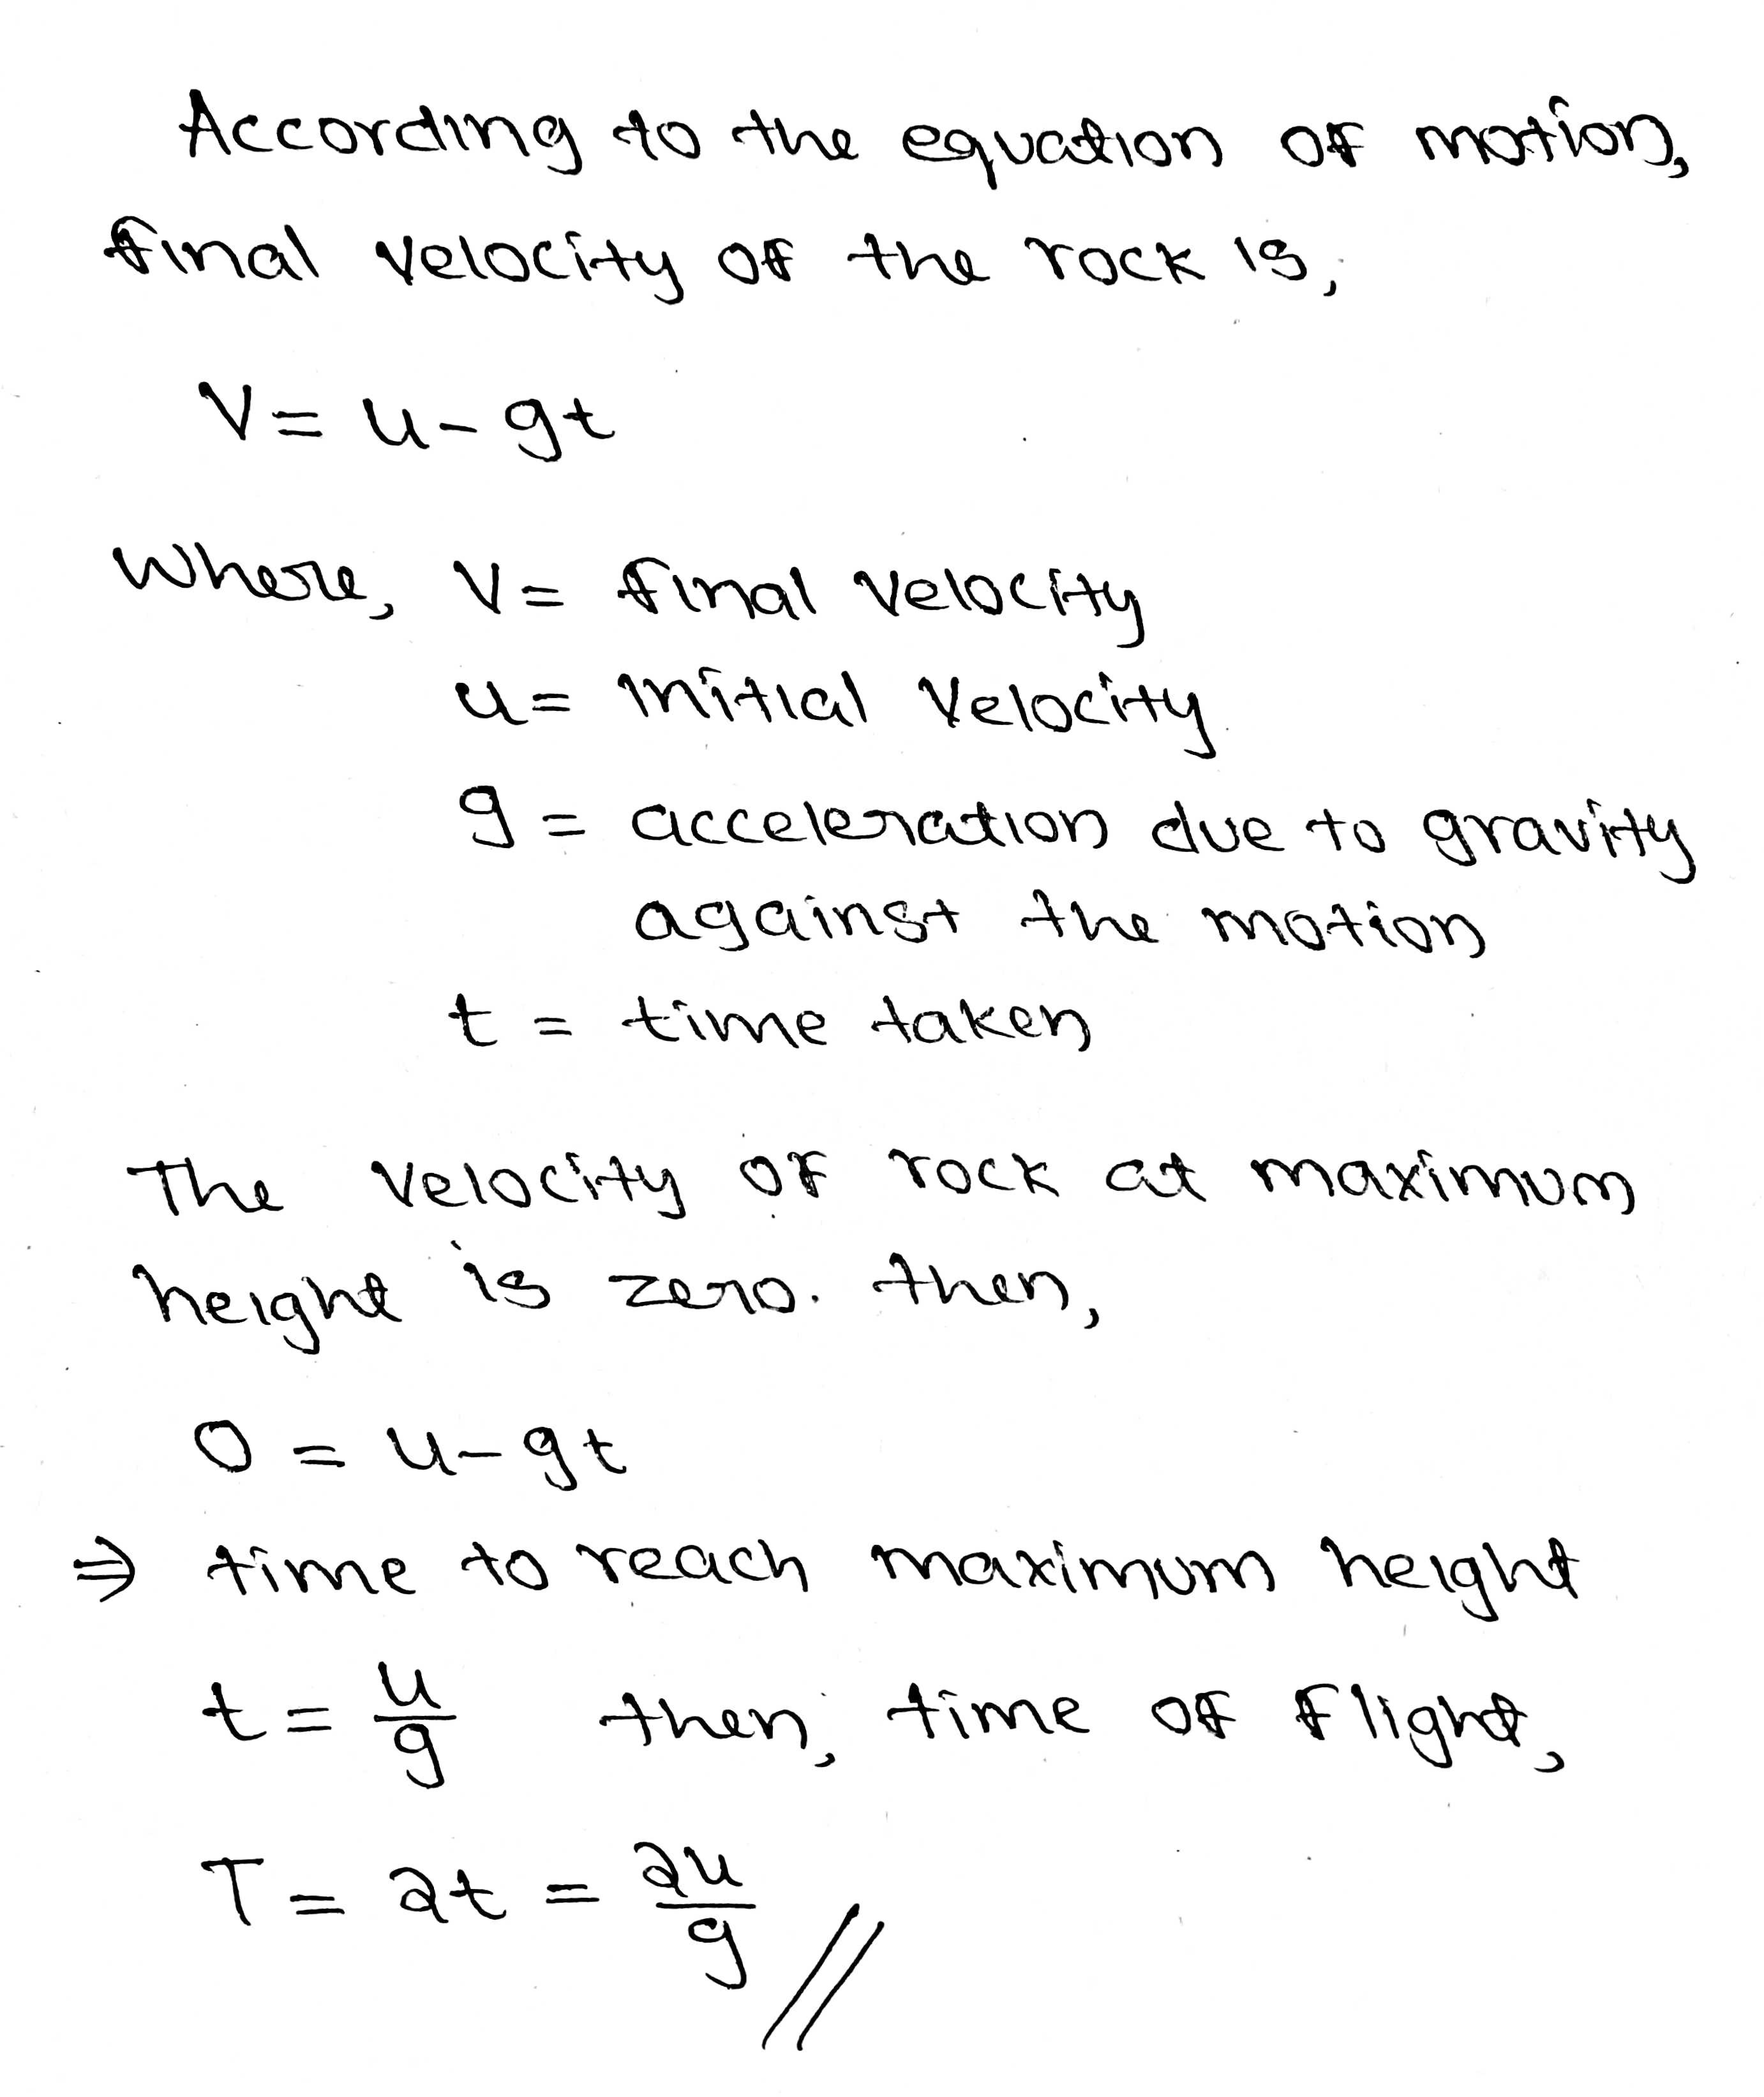 According to the equation of motion,
final velocity of the rock is,
V = u - gt
Where, V = final velocity
u = initial velocity
g = acceleration due to gravity
against the motion
t = time taken
The velocity of rock at maximum
height is zero. then,
0 = u - gt
⇒ time to reach maximum height
t = u/g then, time of flight,
T = 2t = 2u/g //